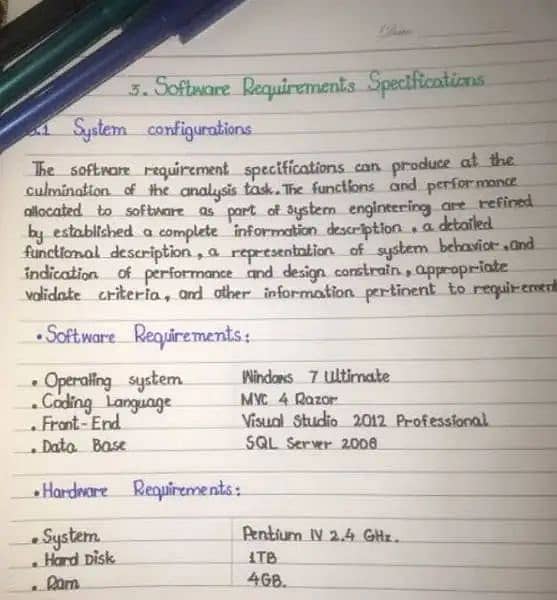 Date:
3. Software Requirements Specifications
3.1 System configurations
The software requirement specifications can produce at the
culmination of the analysis task. The functions and performance
allocated to software as part of system engineering are refined
by established a complete information description, a detailed
functional description, a representation of system behavior, and
indication of performance and design constrain, appropriate
validate criteria, and other information pertinent to requirement
• Software Requirements:
• Operating system Windows 7 Ultimate
• Coding Language MVC 4 Razor
• Front-End Visual Studio 2012 Professional
• Data Base SQL Server 2008
• Hardware Requirements:
• System Pentium IV 2.4 GHz.
• Hard Disk 1TB
• Ram 4GB.